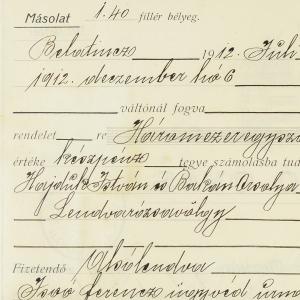 Másolat 1.40 fillér bélyeg.
Belatincz 1912. Júli
1912. deczember hó 6
váltónál fogva
rendelet re Háromezeregyszá
értéke készpénz tegye számolásba tua
Hajdük István és Bakán Orsolya
Lendvarózsavölgy
Fizetendő Alsólendva
Isoó Ferencz ügyvéd úrna